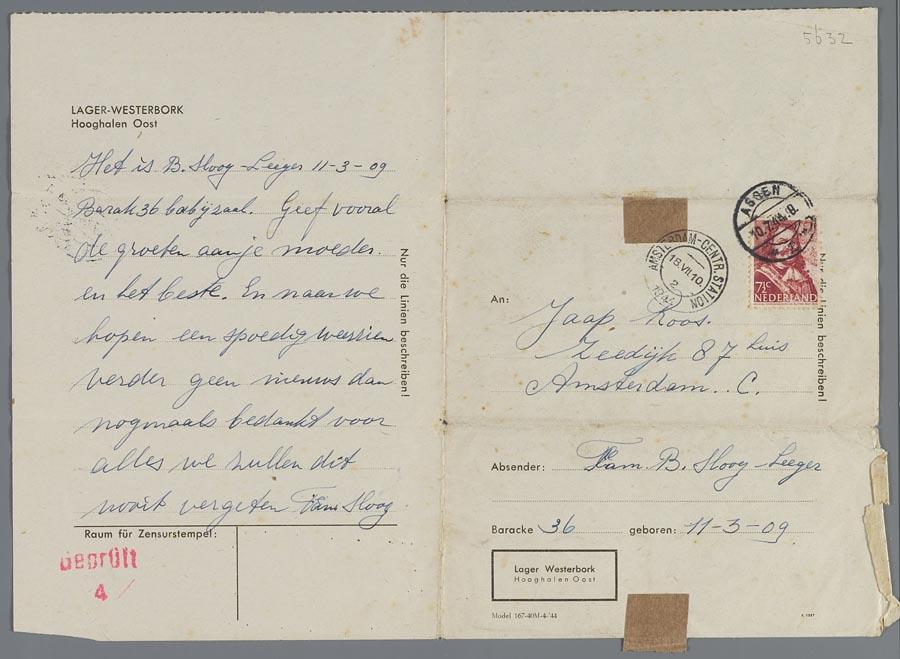 LAGER-WESTERBORK
Hooghalen Oost
Het is B. Slooz-Leeger 11-3-09
Barak 36 babyzaal. Geef vooral
de groeten aan je moeder.
en het beste. En naar we
hopen een spoedig weerzien
verder geen nieuws dan
nogmaals bedankt voor
alles we zullen dit
nooit vergeten Fam Slooz
Nur die Linien beschreiben!
Raum für Zensurstempel:
Geprüft
4
5632
ASSEN
AMSTERDAM-CENTR. STATION
18.VII.10
2
1944
7½ C
NEDERLAND
Nur die Linien beschreiben!
An:
Jaap Koos.
Zeedijk 87 huis
Amsterdam. C.
Absender: Fam. B. Slooz-Leeger
Baracke 36 geboren: 11-3-09
Lager Westerbork
Hooghalen Oost
Model 167-40M-4-'44